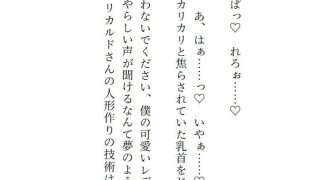 ぱっ♡　れろぉ……♡
あ、はぁ……っ♡　いやぁ……♡
カリカリと焦らされていた乳首を
わないでください、僕の可愛いレデ
やらしい声が聞けるなんて夢のよ
リカルドさんの人形作りの技術は